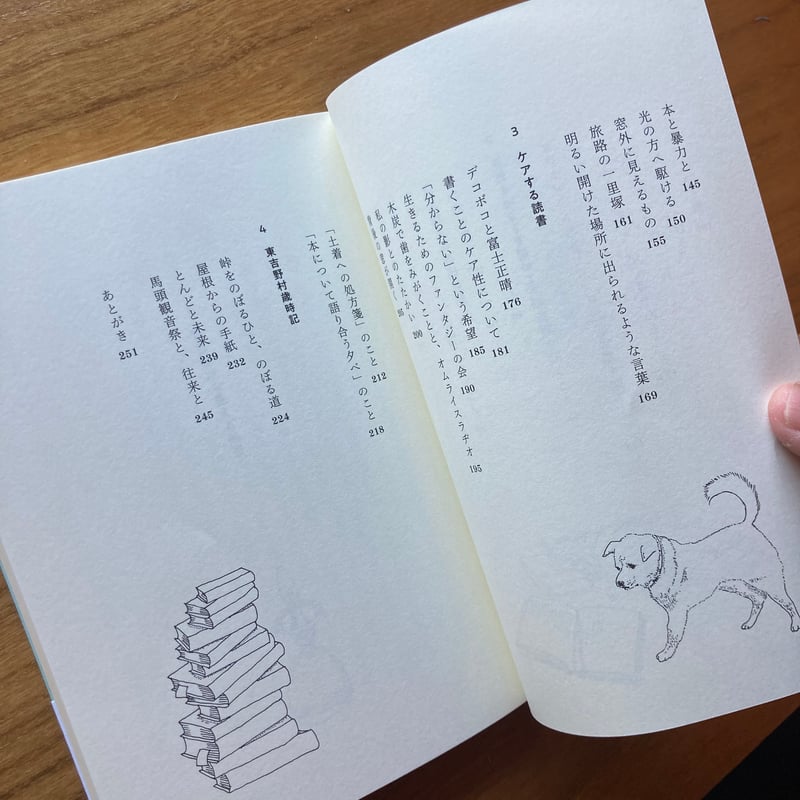 本と暴力と 145
光の方へ駆ける 150
窓外に見えるもの 155
旅路の一里塚 161
明るい開けた場所に出られるような言葉 169
3 ケアする読書
デコボコと富士正晴 176
書くことのケア性について 181
「分からない」という希望 185
生きるためのファンタジーの会 190
木炭で歯をみがくことと、オムライスラヂオ 195
私の影とのたたかい 200
205
「土着への処方箋」のこと 212
「本について語り合う夕べ」のこと 218
4 東吉野村歳時記
峠をのぼるひと、のぼる道 224
屋根からの手紙 232
とんどと未来 239
馬頭観音祭と、往来と 245
あとがき 251